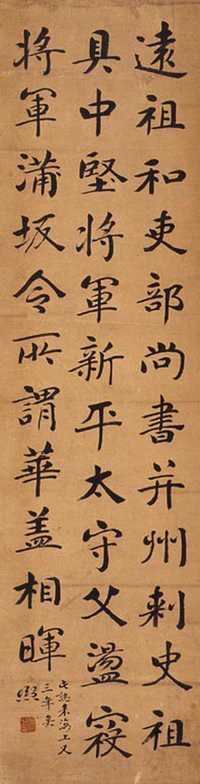 遠祖和吏部尚書并州刺史祖
具中堅將軍新平太守父盪寇
將軍蒲坂令所謂華蓋相暉
來海上又
三年矣
熙